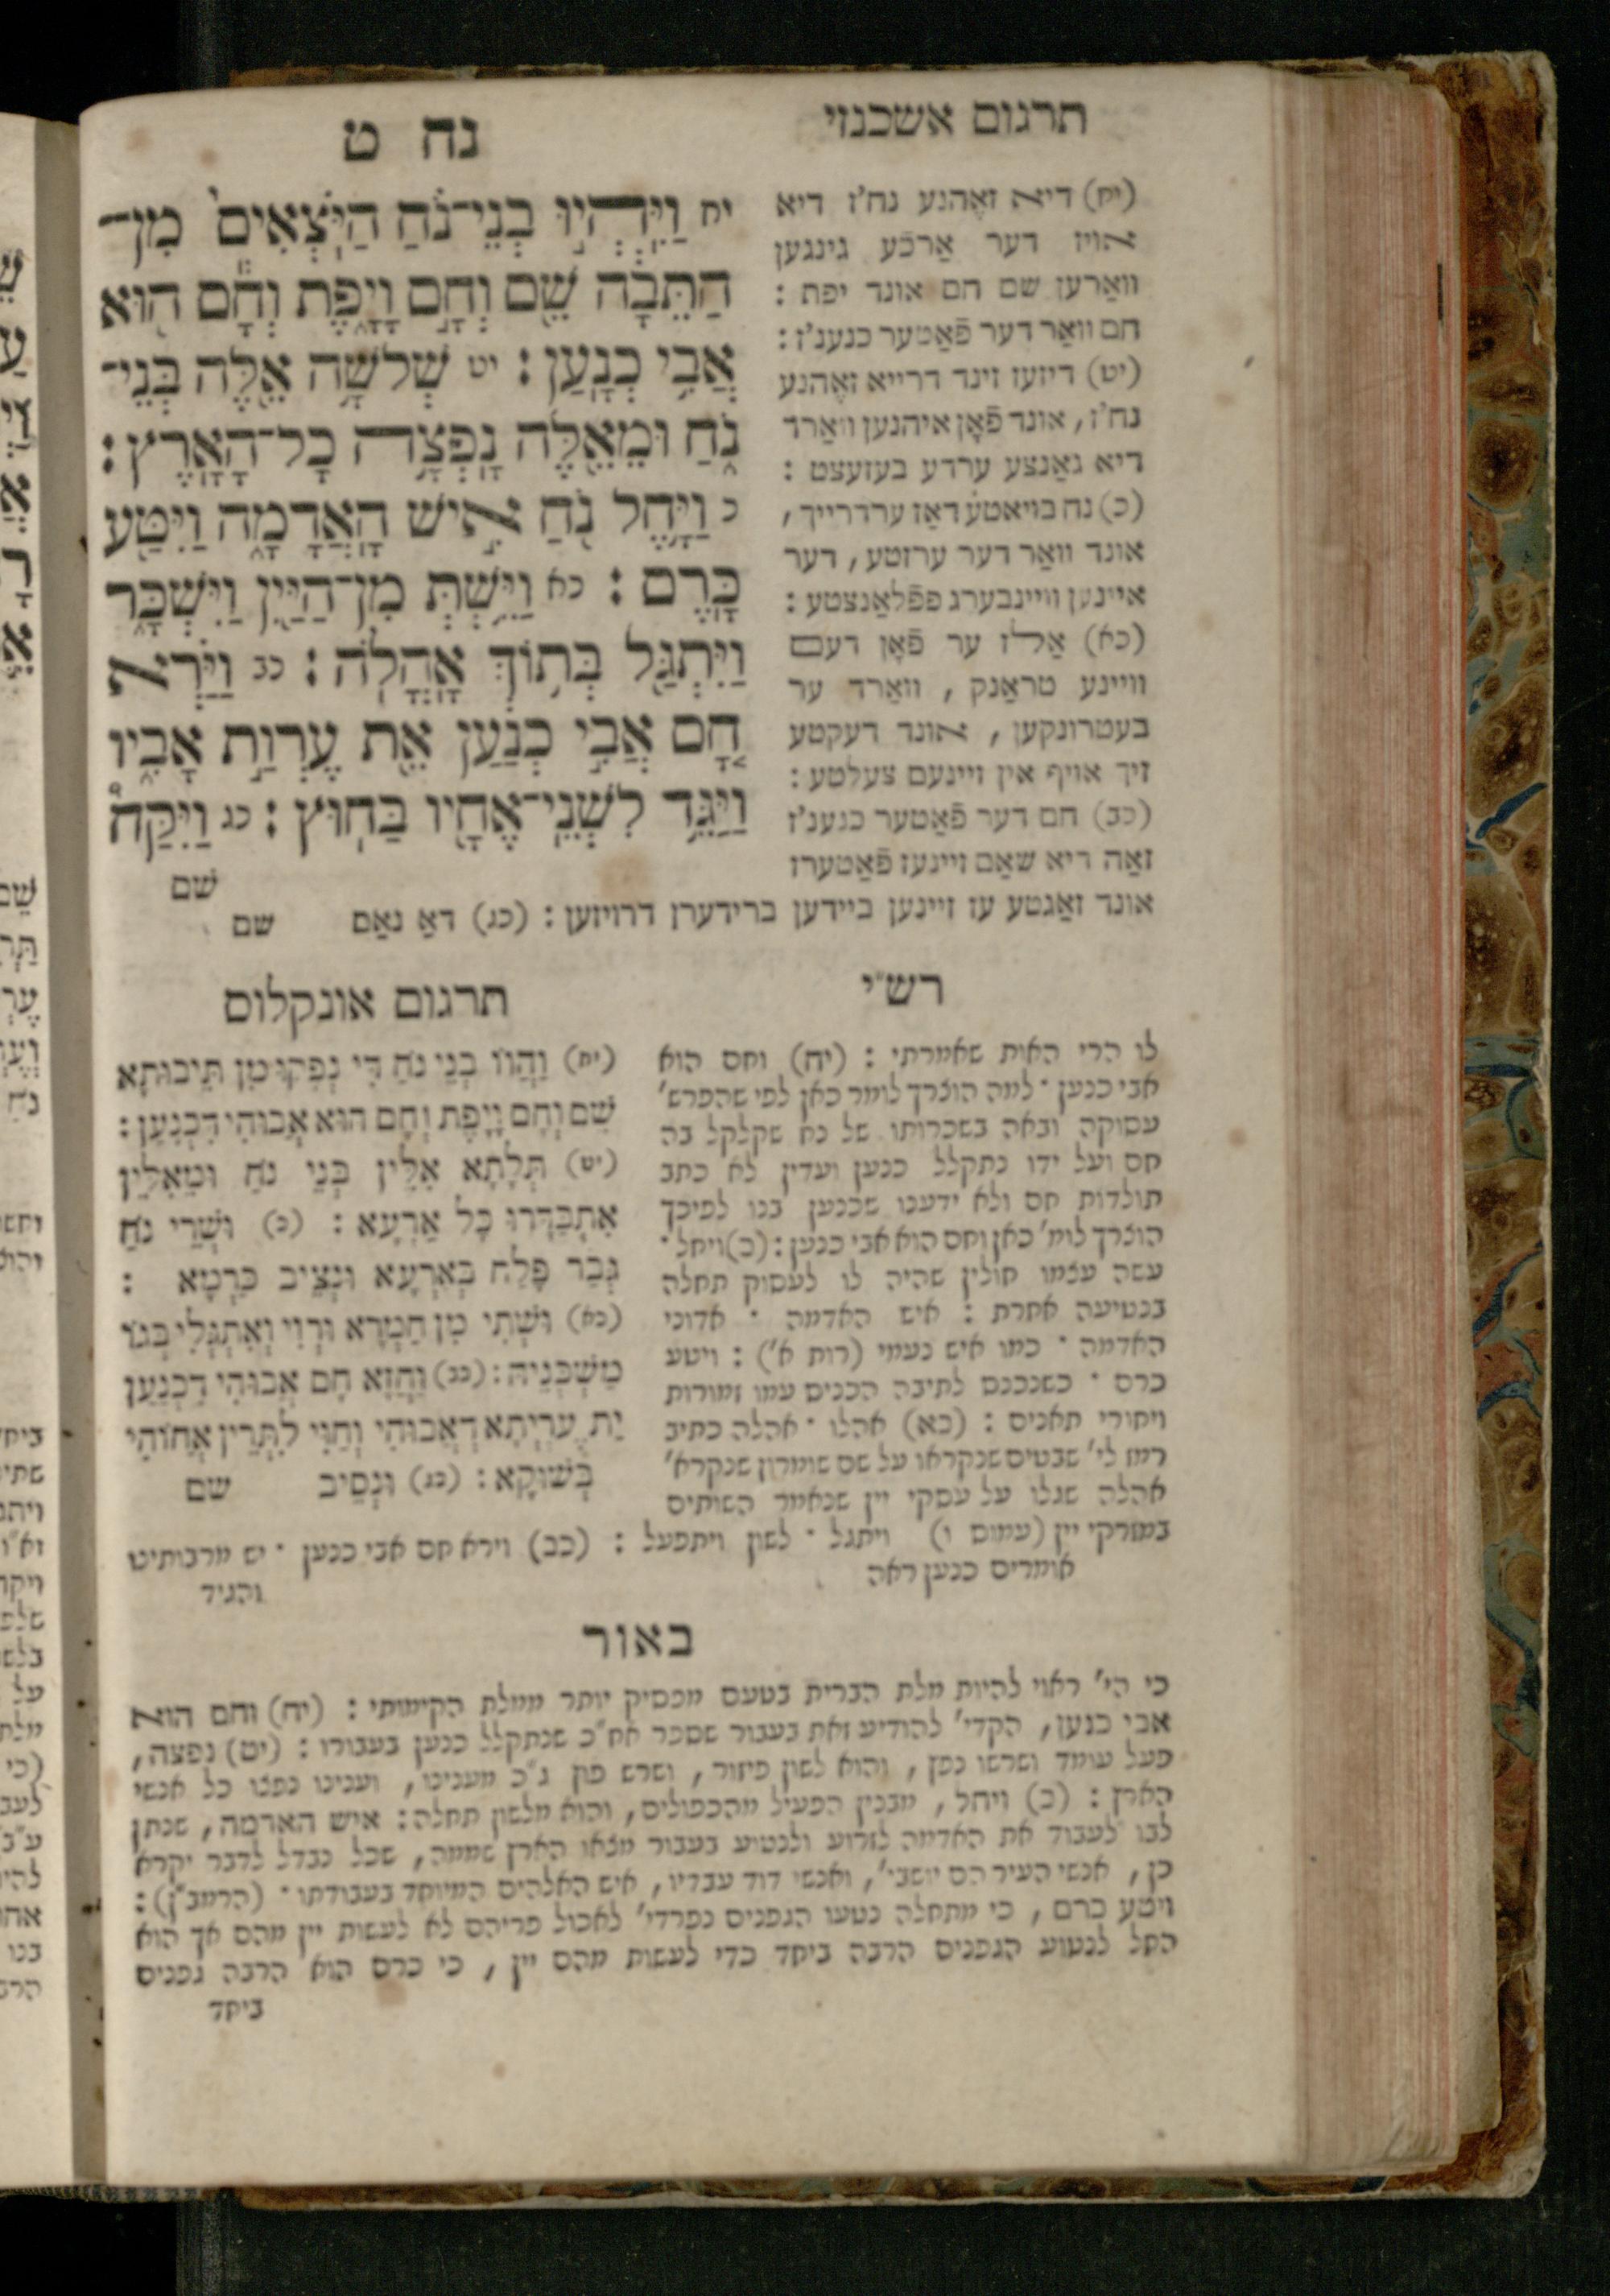 תרגום אשכנזי
נח ט
(יח) דיא זאֶהנע נח'ז דיא
אויז דער אַרכֿע גינגען
וואַרען שם חם אונד יפת :
חם וואַר דער פֿאַטער כנען'ז :
(יט) דיזעז זינד דרייא זאֶהנע
נח'ז, אונד פֿאָן איהנען וואַרד
דיא גאַנצע ערדע בעזעצט :
(כ) נח בויאטע דאַז ערדרייך,
אונד וואַר דער ערזטע, דער
איינען וויינבערג פפֿלאַנצטע :
(כא) אַלז ער פֿאָן דעם
וויינע טראַנק, וואַרד ער
בעטרונקען, אונד דעקטע
זיך אויף אין זיינעם צעלטע :
(כב) חם דער פֿאַטער כנען'ז
זאַה דיא שאַם זיינעז פֿאַטערז
אונד זאַגטע עז זיינען ביידען ברידערן דרויזען : (כג) דאַ נאַם שם
יח וַיִּֽהְי֣וּ בְנֵי־נֹ֗חַ הַיֹּֽצְאִים֙ מִן־
הַתֵּבָ֔ה שֵׁ֖ם וְחָ֣ם וָיָ֑פֶת וְחָ֕ם ה֖וּא
אֲבִ֥י כְנָֽעַן : יט שְׁלֹשָׁ֥ה אֵ֖לֶּה בְּנֵי־
נֹ֑חַ וּמֵאֵ֖לֶּה נָֽפְצָ֥ה כָל־הָאָֽרֶץ :
כ וַיָּ֥חֶל נֹ֖חַ אִ֣ישׁ הָֽאֲדָמָ֑ה וַיִּטַּ֖ע
כָּֽרֶם : כא וַיֵּ֥שְׁתְּ מִן־הַיַּ֖יִן וַיִּשְׁכָּ֑ר
וַיִּתְגַּ֖ל בְּת֥וֹךְ אָֽהֳלֹֽה : כב וַיַּ֗רְא
חָ֚ם אֲבִ֣י כְנַ֔עַן אֵ֖ת עֶרְוַ֣ת אָבִ֑יו
וַיַּגֵּ֥ד לִשְׁנֵֽי־אֶחָ֖יו בַּחֽוּץ : כג וַיִּקַּח֩
שם
רש"י
לו הרי האות שאמרתי : (יח) וחם הוא
אבי כנען ־ למה הוצרך לומר כאן לפי שהפרש'
עסוקה ובאה בשכרותו של נח שקלקל בה
חם ועל ידו נתקלל כנען ועדין לא כתב
תולדות חם ולא ידענו שכנען בנו לפיכך
הוצרך לומ' כאן וחם הוא אבי כנען : (כ) ויחל ־
עשה עצמו חולין שהיה לו לעסוק תחלה
בנטיעה אחרת : איש האדמה ־ אדוני
האדמה ־ כמו איש נעמי (רות א') : ויטע
כרם ־ כשנכנס לתיבה הכניס עמו זמורות
ויחורי תאנים : (כא) אהלו ־ אהלה כתיב
רמז לי' שבטים שנקראו על שם שומרון שנקרא'
אהלה שגלו על עסקי יין שנאמר השותים
במזרקי יין (עמוס ו) ויתגל ־ לשון ויתפעל : (כב) וירא חם אבי כנען ־ יש מרבותינו
אומרים כנען ראה והגיד
תרגום אונקלוס
(יח) וַהֲווֹ בְנֵי נֹחַ דִּי נְפָקוּ מִן תֵּיבוּתָא
שֵׁם וְחָם וָיָפֶת וְחָם הוּא אֲבוּהִי דִכְנָעַן :
(יט) תְּלָתָא אִלֵּין בְּנֵי נֹחַ וּמֵאִלֵּין
אִתְבַּדָּרוּ כָל אַרְעָא : (כ) וְשָׁרֵי נֹחַ
גְּבַר פָּלַח בְּאַרְעָא וּנְצֵיב כַּרְמָא :
(כא) וּשְׁתִי מִן חַמְרָא וּרְוִי וְאִתְגְּלִי בְּגוֹ
מַשְׁכְּנֵיהּ : (כב) וַחֲזָא חָם אֲבוּהִי דִכְנַעַן
יַת עֶרְיְתָא דַאֲבוּהִי וְחַוִּי לִתְרֵין אֲחוֹהִי
בְּשׁוּקָא : (כג) וּנְסֵיב שם
באור
כי הי' ראוי להיות מלת הברית בטעם מפסיק יותר ממלת הקימותי : (יח) וחם הוא
אבי כנען, הקדי' להודיע זאת בעבור שספר אח"כ שנתקלל כנען בעבורו : (יט) נפצה,
פעל עומד ושרשו נפץ, והוא לשון פיזור, ושרש פוץ ג"כ מענינו, וענינו נפצו כל אנשי
הארץ : (כ) ויחל, מבנין הפעיל מהכפולים, והוא מלשון תחלה : איש האדמה, שנתן
לבו לעבוד את האדמה לזרוע ולנטוע בעבור מצאו הארץ שממה, שכל נבדל לדבר יקרא
כן, אנשי העיר הם יושבי', ואנשי דוד עבדיו, איש האלהים המיוחד בעבודתו ־ (הרמב"ן) :
ויטע כרם, כי מתחלה נטעו הגפנים נפרדי' לאכול פריהם לא לעשות יין מהם אך הוא
החל לנטוע הגפנים הרבה ביחד כדי לעשות מהם יין, כי כרם הוא הרבה גפנים
ביחד